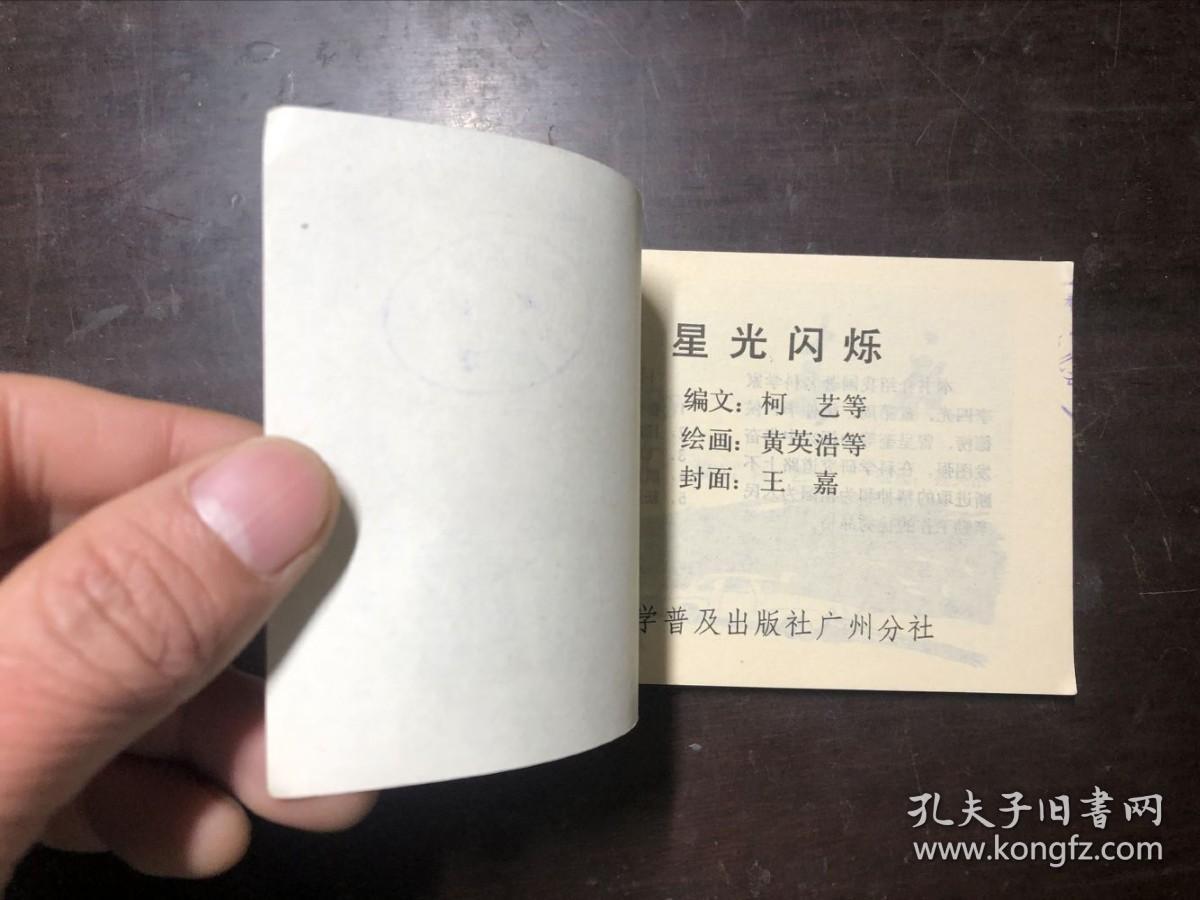 星光闪烁
编文：柯　艺等
绘画：黄英浩等
封面：王　嘉
学普及出版社广州分社
孔夫子旧书网
www.kongfz.com